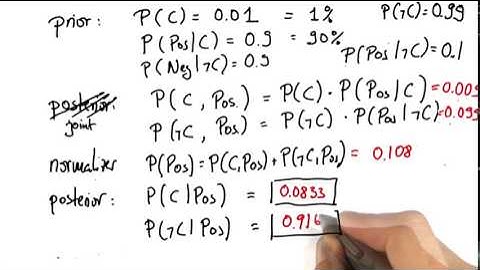 prior: P(C) = 0.01 = 1% P(¬C)=0.99
P(Pos|C) = 0.9 = 90% P(Pos|¬C)=0.1
P(Neg|¬C) = 0.9
posterior: P(C, Pos) = P(C) · P(Pos|C) =0.009
joint P(¬C, Pos) = P(¬C) · P(Pos|¬C) =0.099
normalizer P(Pos) = P(C,Pos) + P(¬C,Pos) = 0.108
posterior: P(C|Pos) = 0.0833
P(¬C|Pos) = 0.916